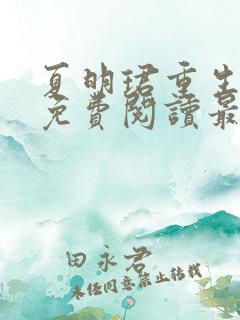 夏明珺重生
免費閱讀最
田永君
未經同意禁止轉載